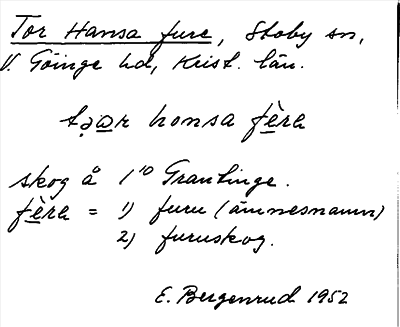 Tor Hansa fure, Stoby sn,
V. Göinge hd, Krist. län.
honsa
skog å 1¹⁰ Grantinge.
= 1) furu (ämnesnamn)
2) furuskog.
E. Bergenrud 1952